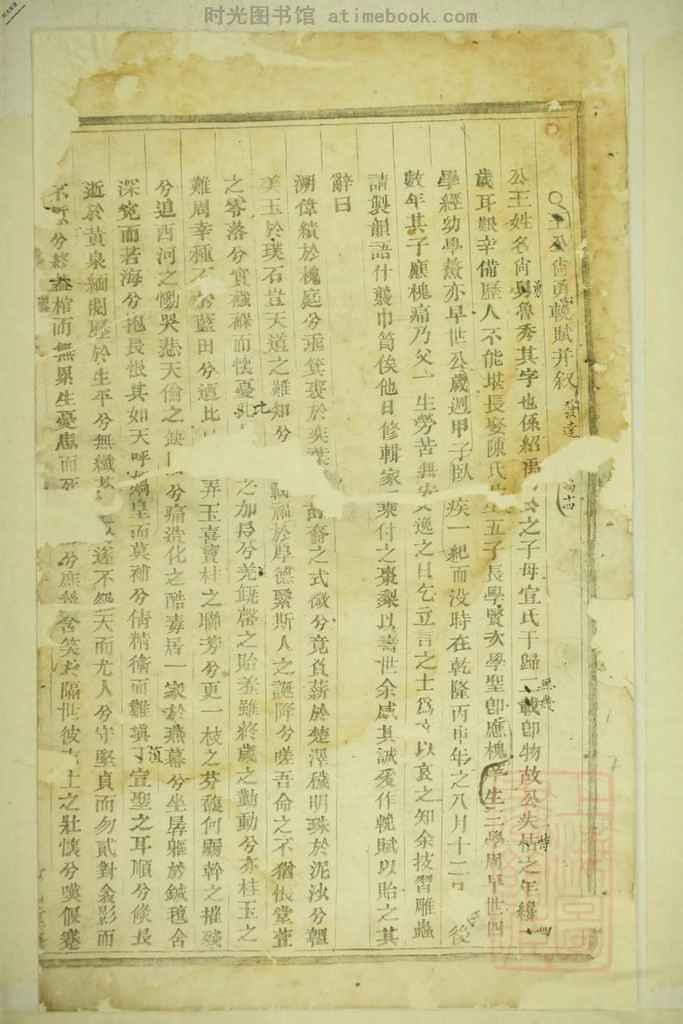 时光图书馆 atimebook.com
王公尚勇輓賦并叙
公王姓名尚勇魯秀其字也係紹禹之子母宣氏于歸二載卽物故公失恃之年纔四
歲耳艱辛備歷人不能堪長娶陳氏生五子長學賢次學聖卽應槐三學周早世四
學經幼學敖亦早世公歲週甲子臥疾一紀而没時在乾隆丙申年之八月十二日後
數年其子應槐痛乃父一生勞苦無安逸之日乞立言之士爲以哀之知余技習雕蟲
請製韻語什襲巾笥俟他日修輯家乘付之棗梨以壽世余感其誠爰作輓賦以貽之其
辭曰
溯偉績於槐庭兮垂箕裘於奕葉裔之式微兮竟負薪於楚澤穢明珠於泥浊兮韞
美玉於璞石豈天道之難知兮福於厚德緊斯人之誕降兮嗟吾命之不猶悵堂萱
之零落兮實襁褓而懷憂之加長兮羌缾罄之貽羞雖終歲之勤動兮亦桂玉之
難周幸種藍田兮弄玉喜寶桂之聯芳兮更一枝之芬馥何弱幹之摧殘
兮追西河之慟哭悲天倫之缺兮痛造化之酷毒居一家於燕幕兮坐孱軀於鍼氊含
深寃而若海兮抱長恨其如天呼媧皇而莫補兮倩精衛而難填宣聖之耳順兮倐長
逝於黃泉緬閱歷於生平兮無纖遂不怨天而尤人兮守堅貞而勿貳對衾影而
不兮終蓋棺而無累生憂患而死兮庶含笑於隔世彼吉士之壯懷兮嘆偃蹇